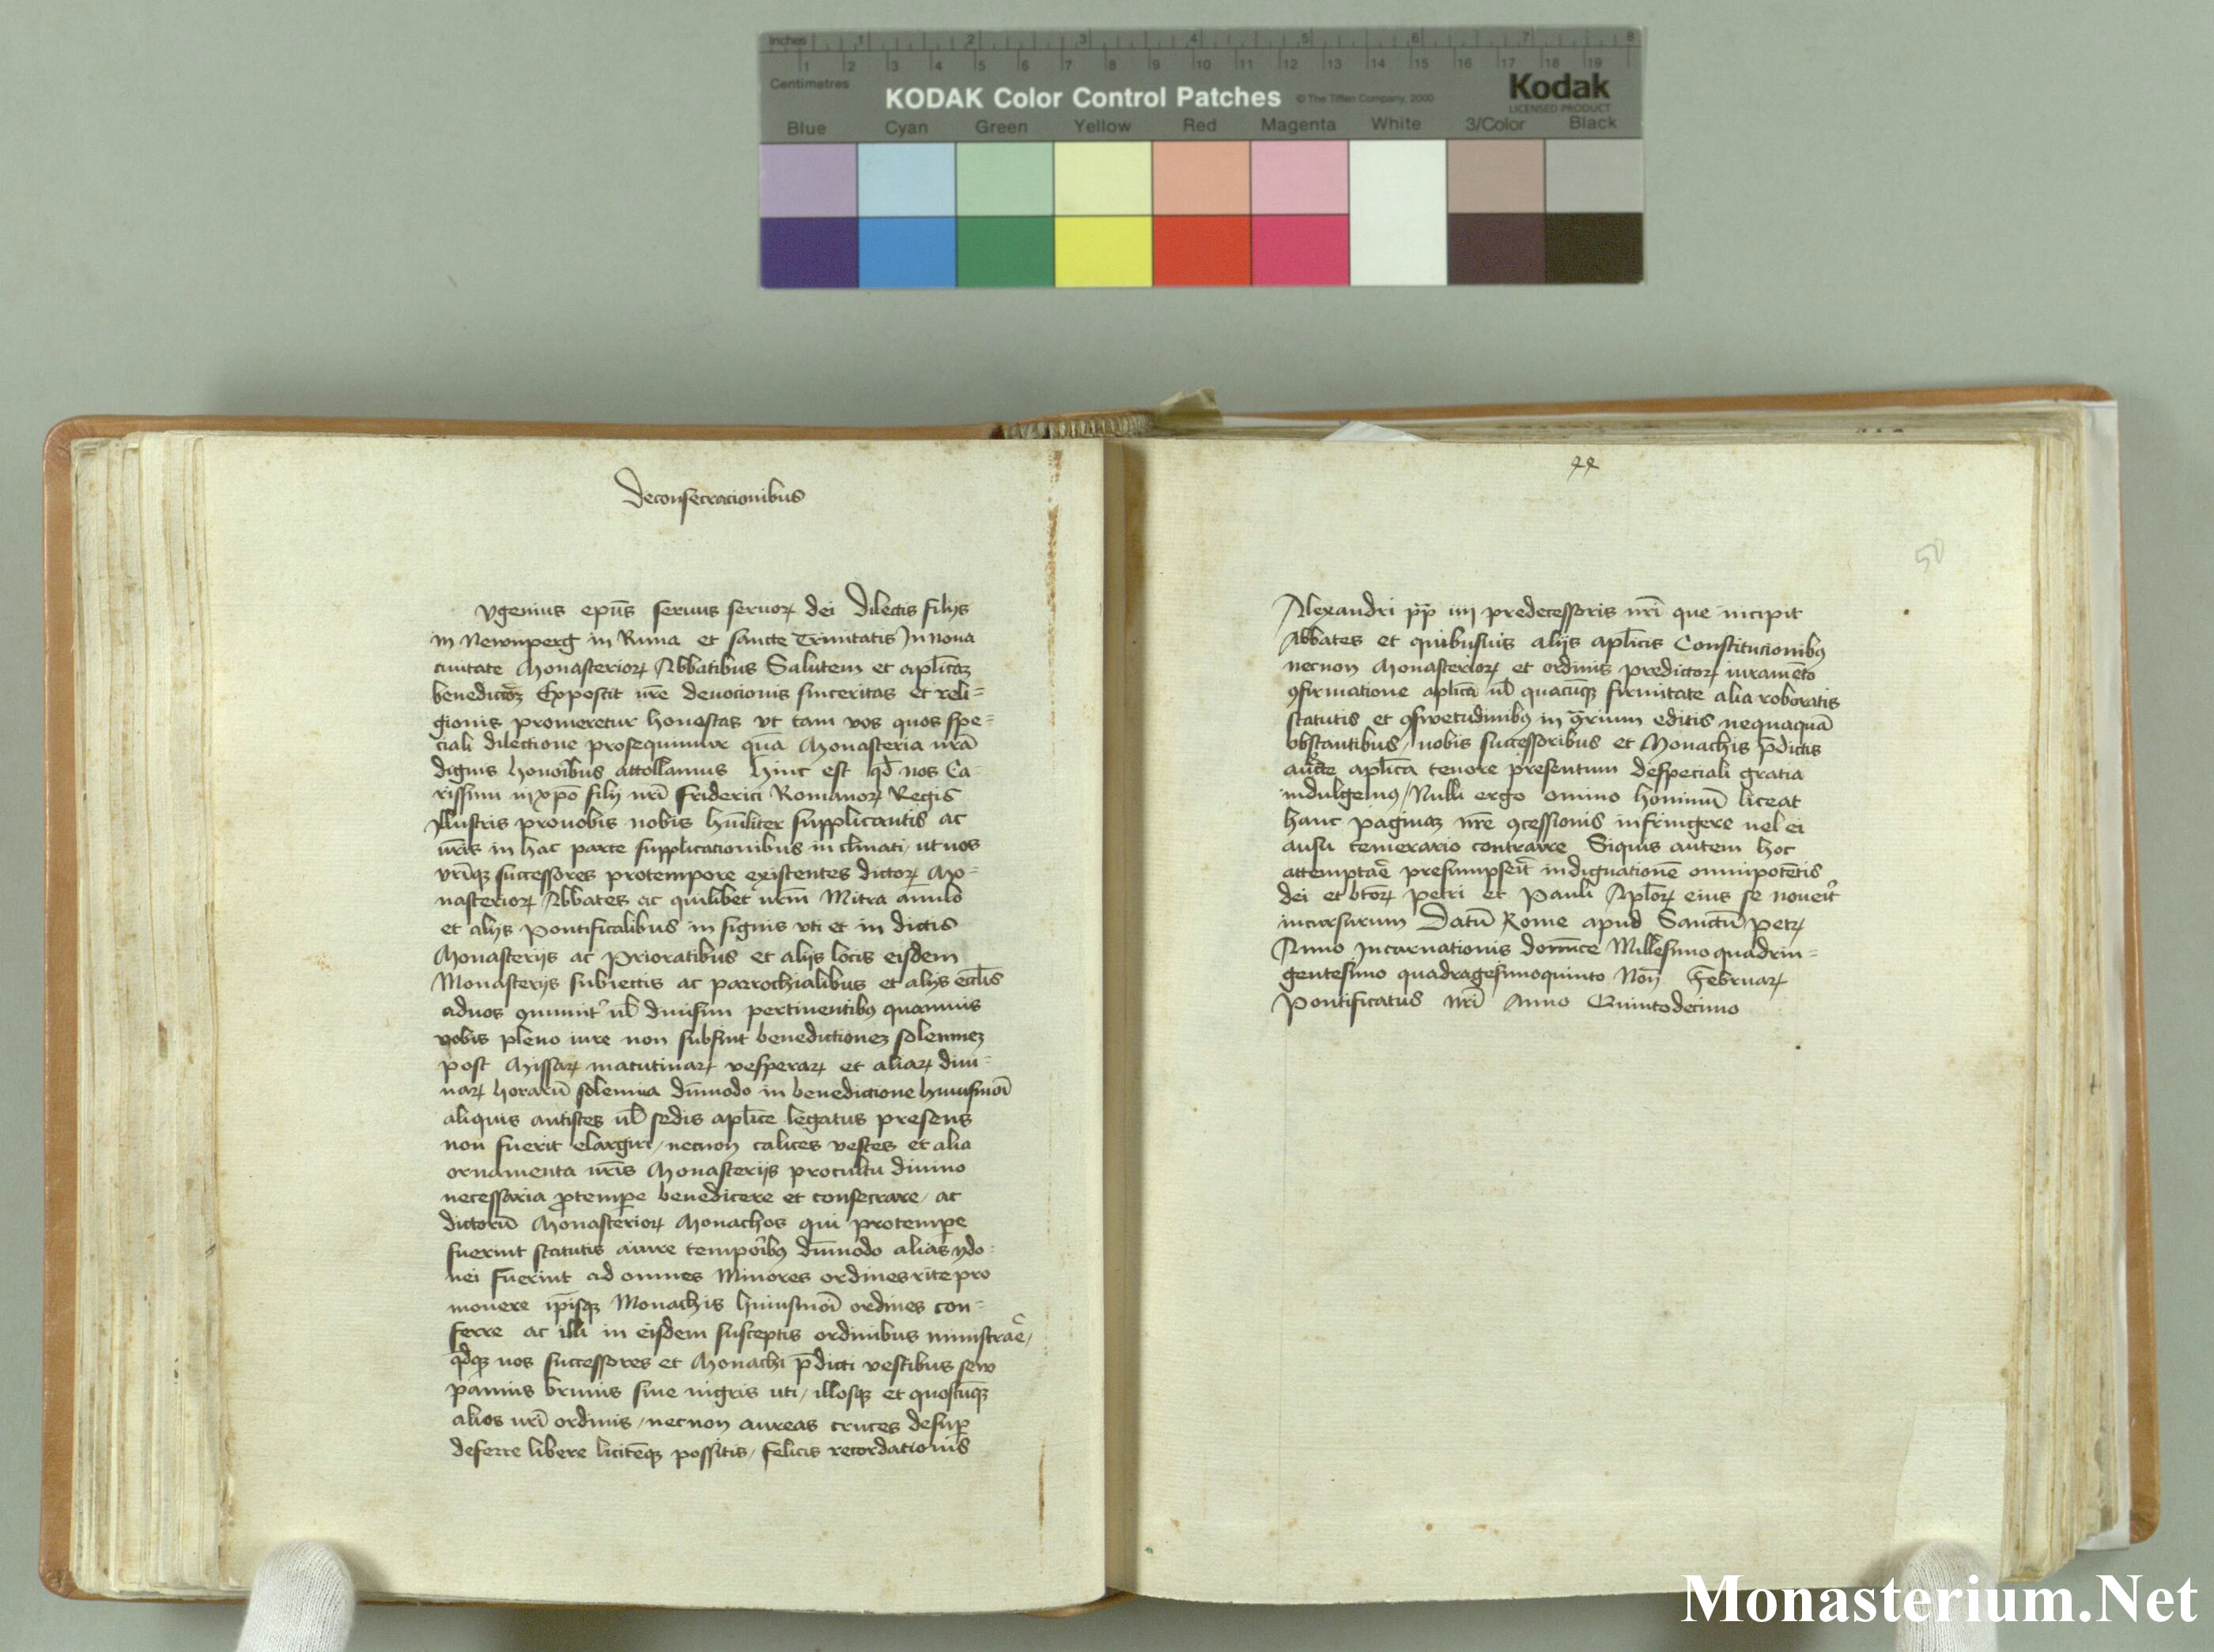 Inches 1 2 3 4 5 6 7 8
1 2 3 4 5 6 7 8 9 10 11 12 13 14 15 16 17 18 19
Centimetres
KODAK Color Control Patches © The Tiffen Company, 2000 Kodak
LICENSED PRODUCT
Blue Cyan Green Yellow Red Magenta White 3/Color Black
Deconsecracionibus
vgenius ep̄us seruus seruoꝝ dei Dilectis filijs
in Newnperg in Runa et sancte Trinitatis In noua
ciuitate Monasterioꝝ Abbatibus Salutem et apl̄icaꝫ
benedictōeꝫ Exposcit vr̄e deuocionis sinceritas et reli=
gionis promeretur honestas vt tam vos quos spe=
ciali dilectione prosequimur quā Monasteria vr̄a
dignis honoribus attollamus Hinc est qđ nos Ca-
rissimi in xp̄o filij nr̄i Friderici Romanoꝝ Regis
Illustris prouobis nobis hūiliter supplicantis ac
vr̄is in hac parte supplicationibus inclinati, ut uos
vr̄iqꝫ successores protempore existentes dictoꝝ Mo-
nasterioꝝ Abbates ac quilibet vr̄m Mitra anulo
et alijs Pontificalibus insignis vti et in dictis
Monasterijs ac Prioratibus et alijs locis eisdem
Monasterijs subiectis ac parrochialibus et alijs eccl̄is
aduos ꝯmunit̉ ul̄ diuisim pertinentibꝰ quamuis
vobis pleno iure non subsint benedictioneꝫ solemneꝫ
post Missaꝝ matutinaꝝ vesperaꝝ et aliaꝝ diui-
naꝝ horarū solemnia dūmodo in benedictione huiusmōi
aliquis antistes ul̄ sedis apl̄ice legatus presens
non fuerit elargiri, necnon calices vestes et alia
ornamenta vr̄is Monasterijs procultu diuino
necessaria ꝓtempe benedicere et consecrare, ac
dictorū Monasterioꝝ Monachos qui protempe
fuerint statutis aiure temporibꝰ dūmodo alias ydo-
nei fuerint ad omnes Minores ordines rite pro
mouere ip̄isqꝫ Monachis huiusmōi ordines con-
ferre ac illi in eisdem susceptis ordinibus ministrar̄e,
qđqꝫ uos successores et Monachi p̄dicti vestibus sew
pannis brunis siue nigris uti, illosqꝫ et quoscūqꝫ
alios vr̄i ordinis, necnon aureas cruces desuꝑ
deferre libere liciteqꝫ possitis, felicis recordationis
44
50
Alexandri pp̄ iiij predecessoris nr̄i que incipit
Abbates et quibusuis alijs apl̄icis Constitucionibꝰ
necnon Monasterioꝝ et ordinis predictoꝝ iuramēto
ꝯfirmatione apl̄ica ul̄ quacūqꝫ firmitate alia roboratis
statutis et ꝯswetudinibꝰ in ꝯr̄rium editis nequaquā
obstantibus, uobis successoribus et Monachis p̄dictis
auc̄te apl̄ica tenore presentium despeciali gratia
indulgemꝰ, Nulli ergo omino hominū liceat
hanc paginaꝫ nr̄e ꝯcessionis infringere uel ei
ausu temerario contraire Siquis autem hoc
attemptar̄e presumpserit indignationē omnipotētis
dei et btōꝝ Petri et Pauli Apl̄oꝝ eius se nouerit
incursurum Datū Rome apud Sanctū Petꝝ
Anno Incarnationis domīce Millesimo quadrin-
gentesimo quadragesimoquinto Non̄ Februaꝝ
Pontificatus Nr̄i Anno Quintodecimo
Monasterium.Net